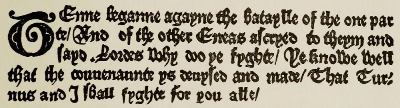 TEnne beganne agayne the bataylle of the one par
te/And of the other Eneas ascryed to theym and
sayd. Lordes why doo ye fyghte/ Ye knowe well
that the couuenaunte ys deuysed and made/That Tur-
nus and I shall fyghte for you alle/